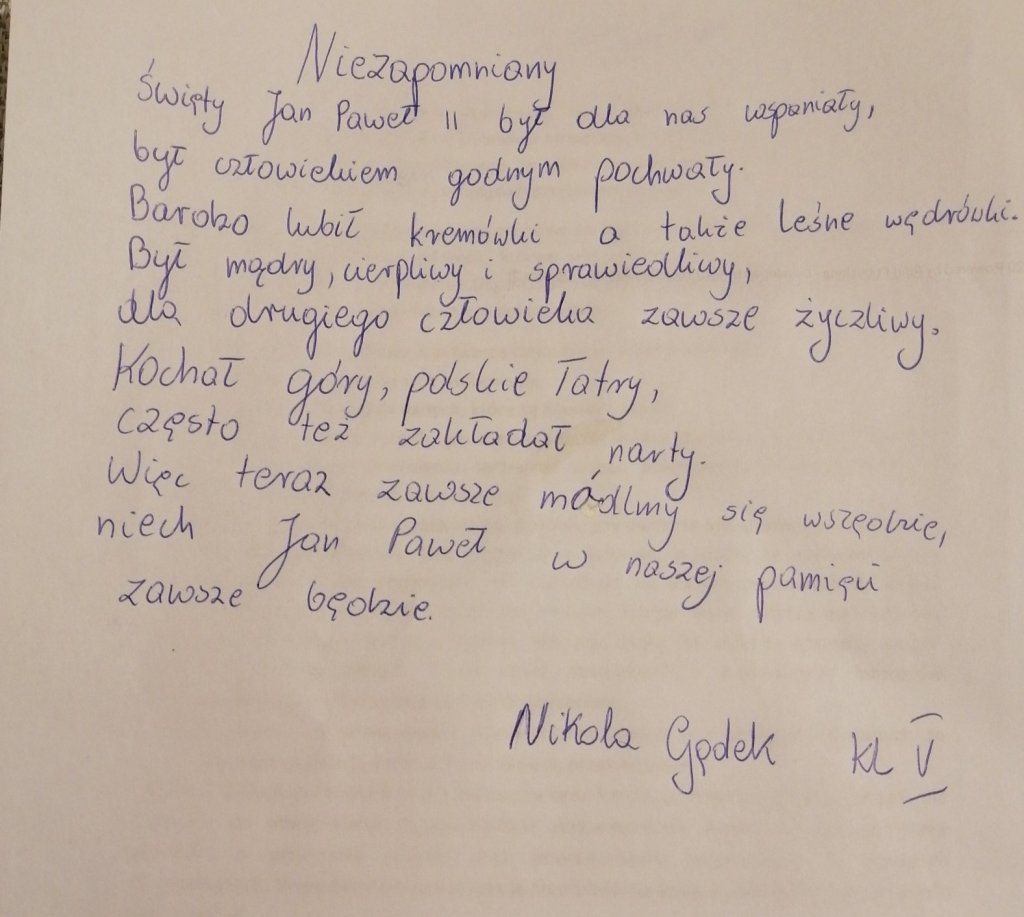 Niezapomniany
Święty Jan Paweł II był dla nas wspaniały,
był człowiekiem godnym pochwały.
Bardzo lubił kremówki a także leśne wędrówki.
Był mądry, cierpliwy i sprawiedliwy,
dla drugiego człowieka zawsze życzliwy.
Kochał góry, polskie Tatry,
często też zakładał narty.
Więc teraz zawsze módlmy się wszędzie,
niech Jan Paweł w naszej pamięci
zawsze będzie.
Nikola Gędek kl V